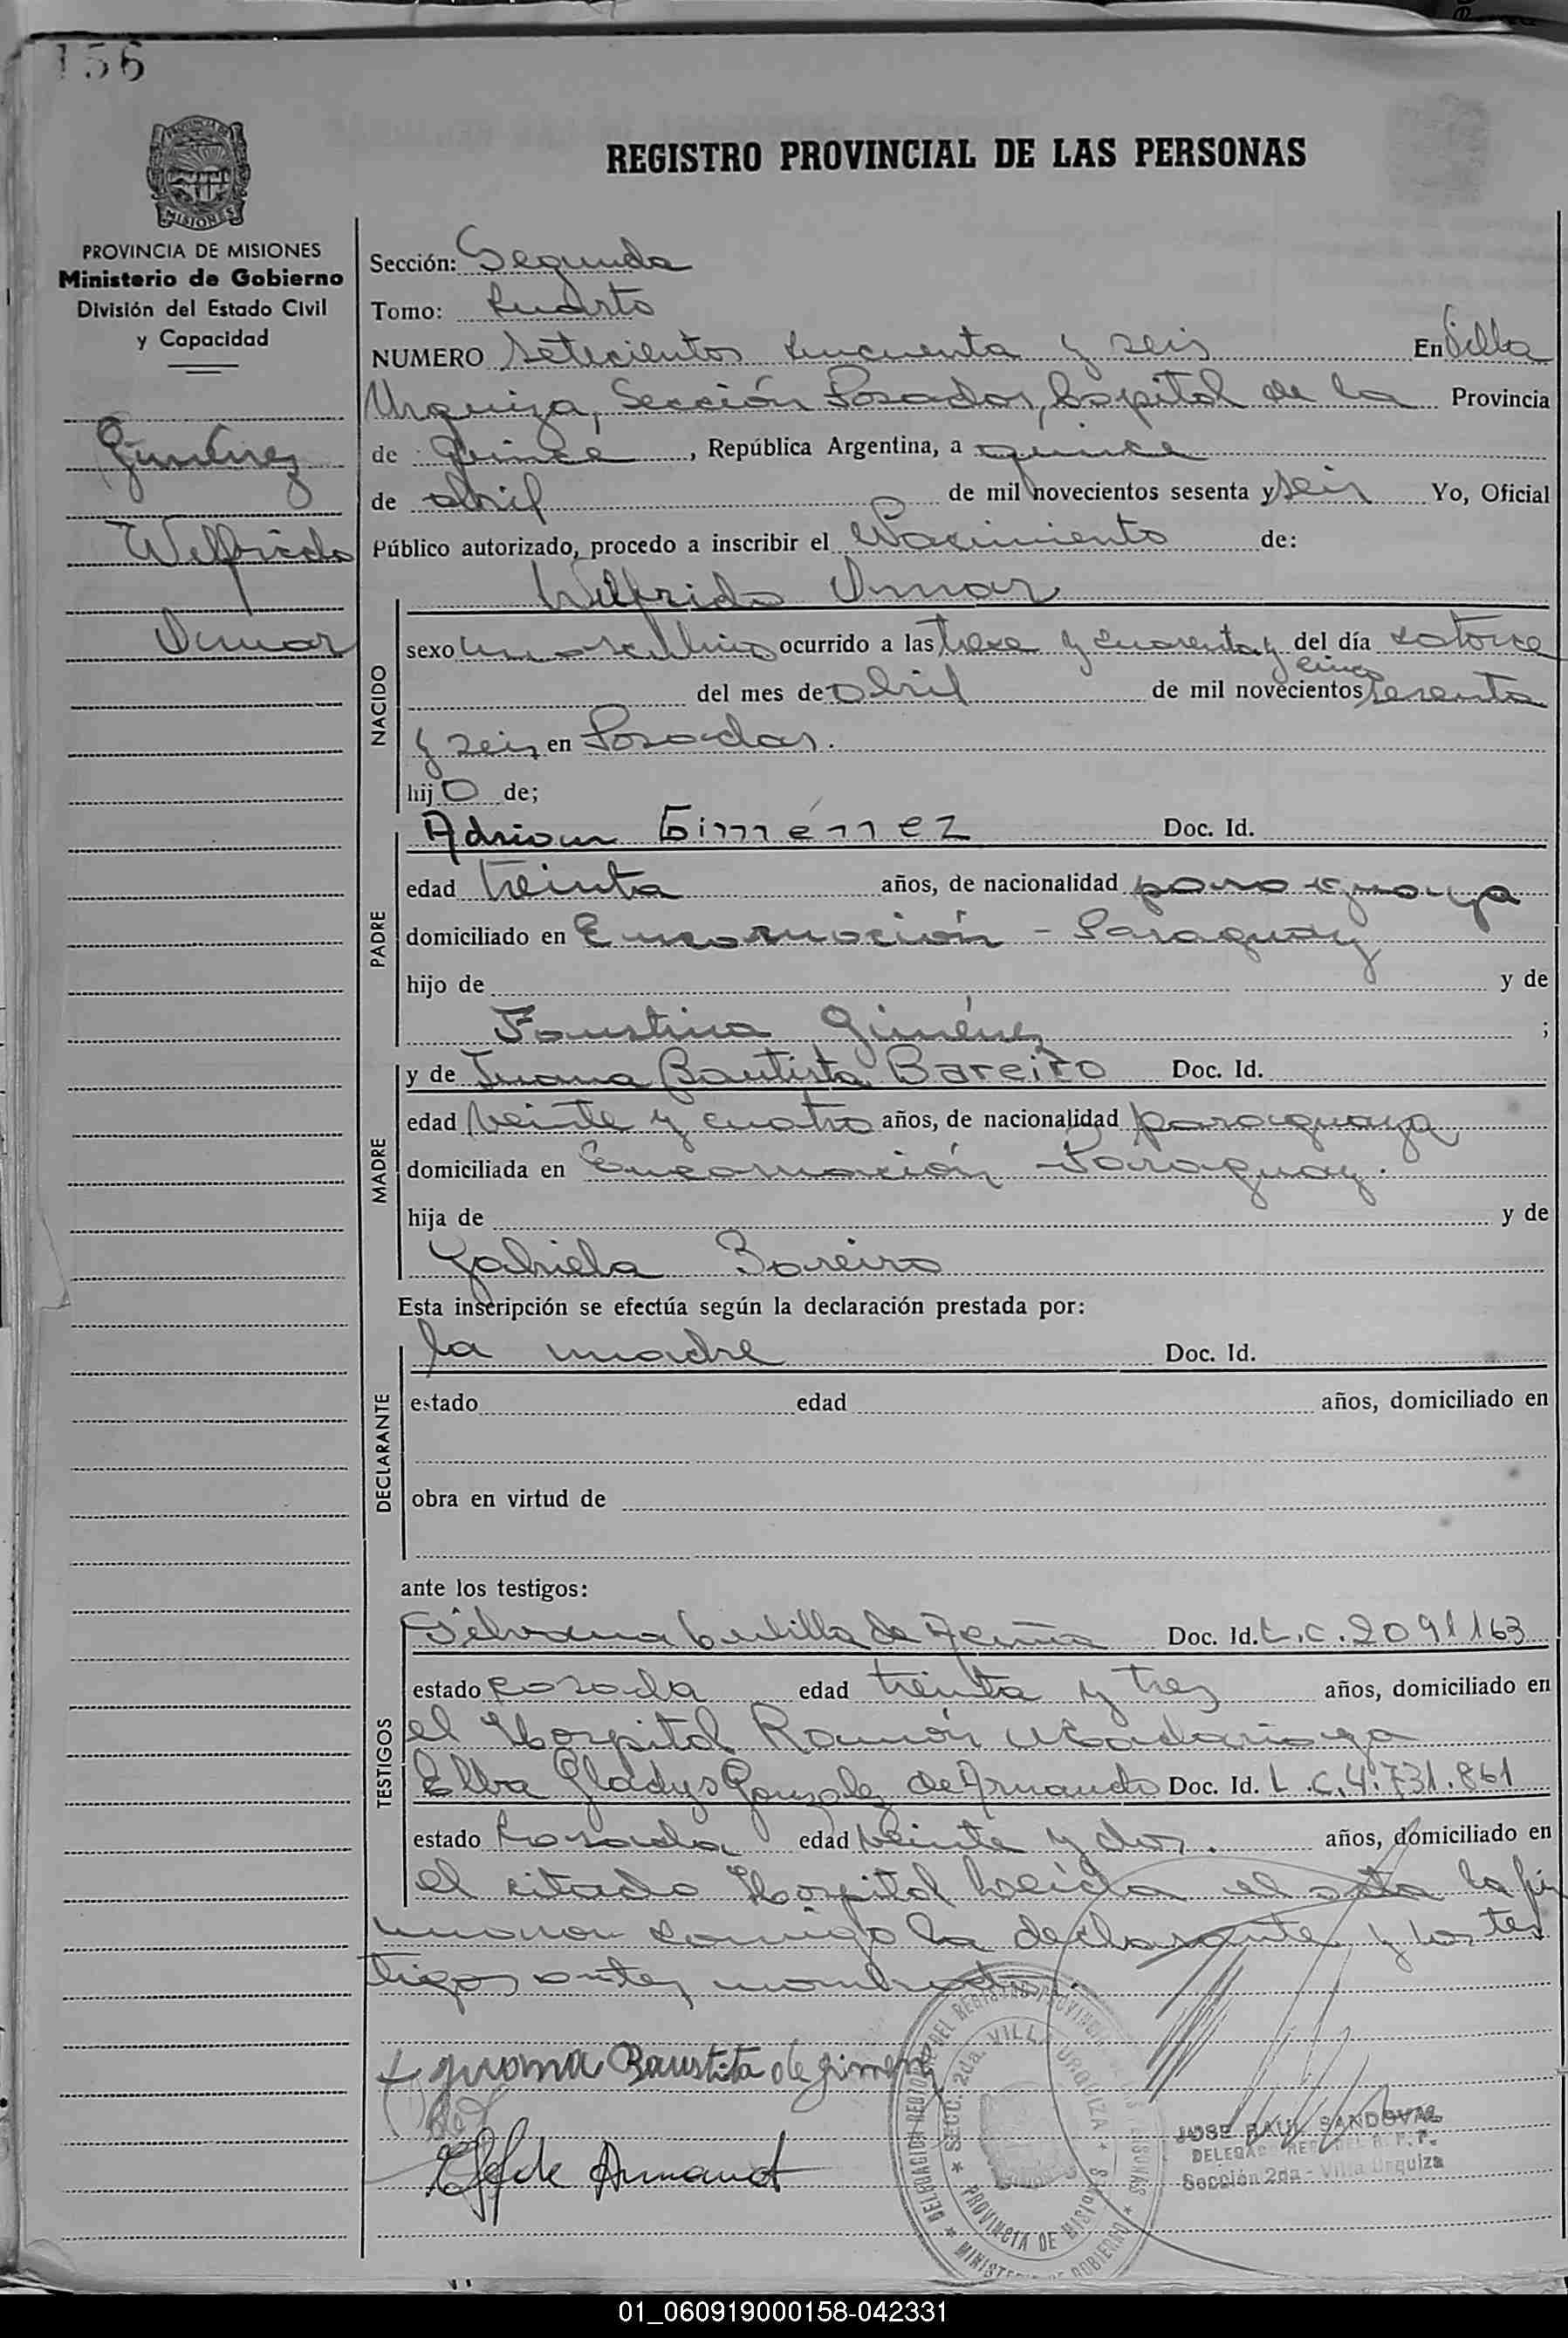 156
REGISTRO PROVINCIAL DE LAS PERSONAS
PROVINCIA DE MISIONES
MISIONES
PROVINCIA DE MISIONES
Ministerio de Gobierno
División del Estado Civil
y Capacidad
Giménez
Wilfrido
Omar
Sección: Segunda
Tomo: Cuarto
NUMERO Setecientos cincuenta y seis En Villa
Urquiza, Sección Posadas, Capital de la Provincia
de , República Argentina, a quince
de abril de mil novecientos sesenta y seis Yo, Oficial
Público autorizado, procedo a inscribir el Nacimiento de:
Wilfrido Omar
NACIDO
sexo masculino ocurrido a las trece y cuarenta y cinco del día catorce
del mes de abril de mil novecientos sesenta
y seis en Posadas.
hijo de;
PADRE
Adrian Giménez Doc. Id.
edad treinta años, de nacionalidad paraguaya
domiciliado en Encarnación - Paraguay
hijo de y de
Faustina Giménez ;
MADRE
y de Juana Bautista Bareiro Doc. Id.
edad veinte y cuatro años, de nacionalidad paraguaya
domiciliada en Encarnación - Paraguay.
hija de y de
Gabriela Bareiro
Esta inscripción se efectúa según la declaración prestada por:
DECLARANTE
la madre Doc. Id.
estado edad años, domiciliado en
obra en virtud de
ante los testigos:
TESTIGOS
Silvana de Acuña Doc. Id. L.C. 2091163
estado casada edad treinta y tres años, domiciliado en
el Hospital Ramón Madariaga
Elba Gladys Gonzalez de Armando Doc. Id. L.C. 4.731.861
estado casada edad veinte y dos. años, domiciliado en
el citado Hospital Leída el acta la fir
maron conmigo la declarante y los tes
tigos antes nombrados.
Juana Baustita de Gimenez
EG de Armando
DELEGACION DEL REGISTRO PROVINCIAL DE LAS PERSONAS
SECC. 2da. VILLA URQUIZA
PROVINCIA DE MISIONES
MINISTERIO DE GOBIERNO
JOSE RAUL SANDOVAL
DELEGADO REG. DEL R. P. P.
Sección 2da - Villa Urquiza
01_060919000158-042331